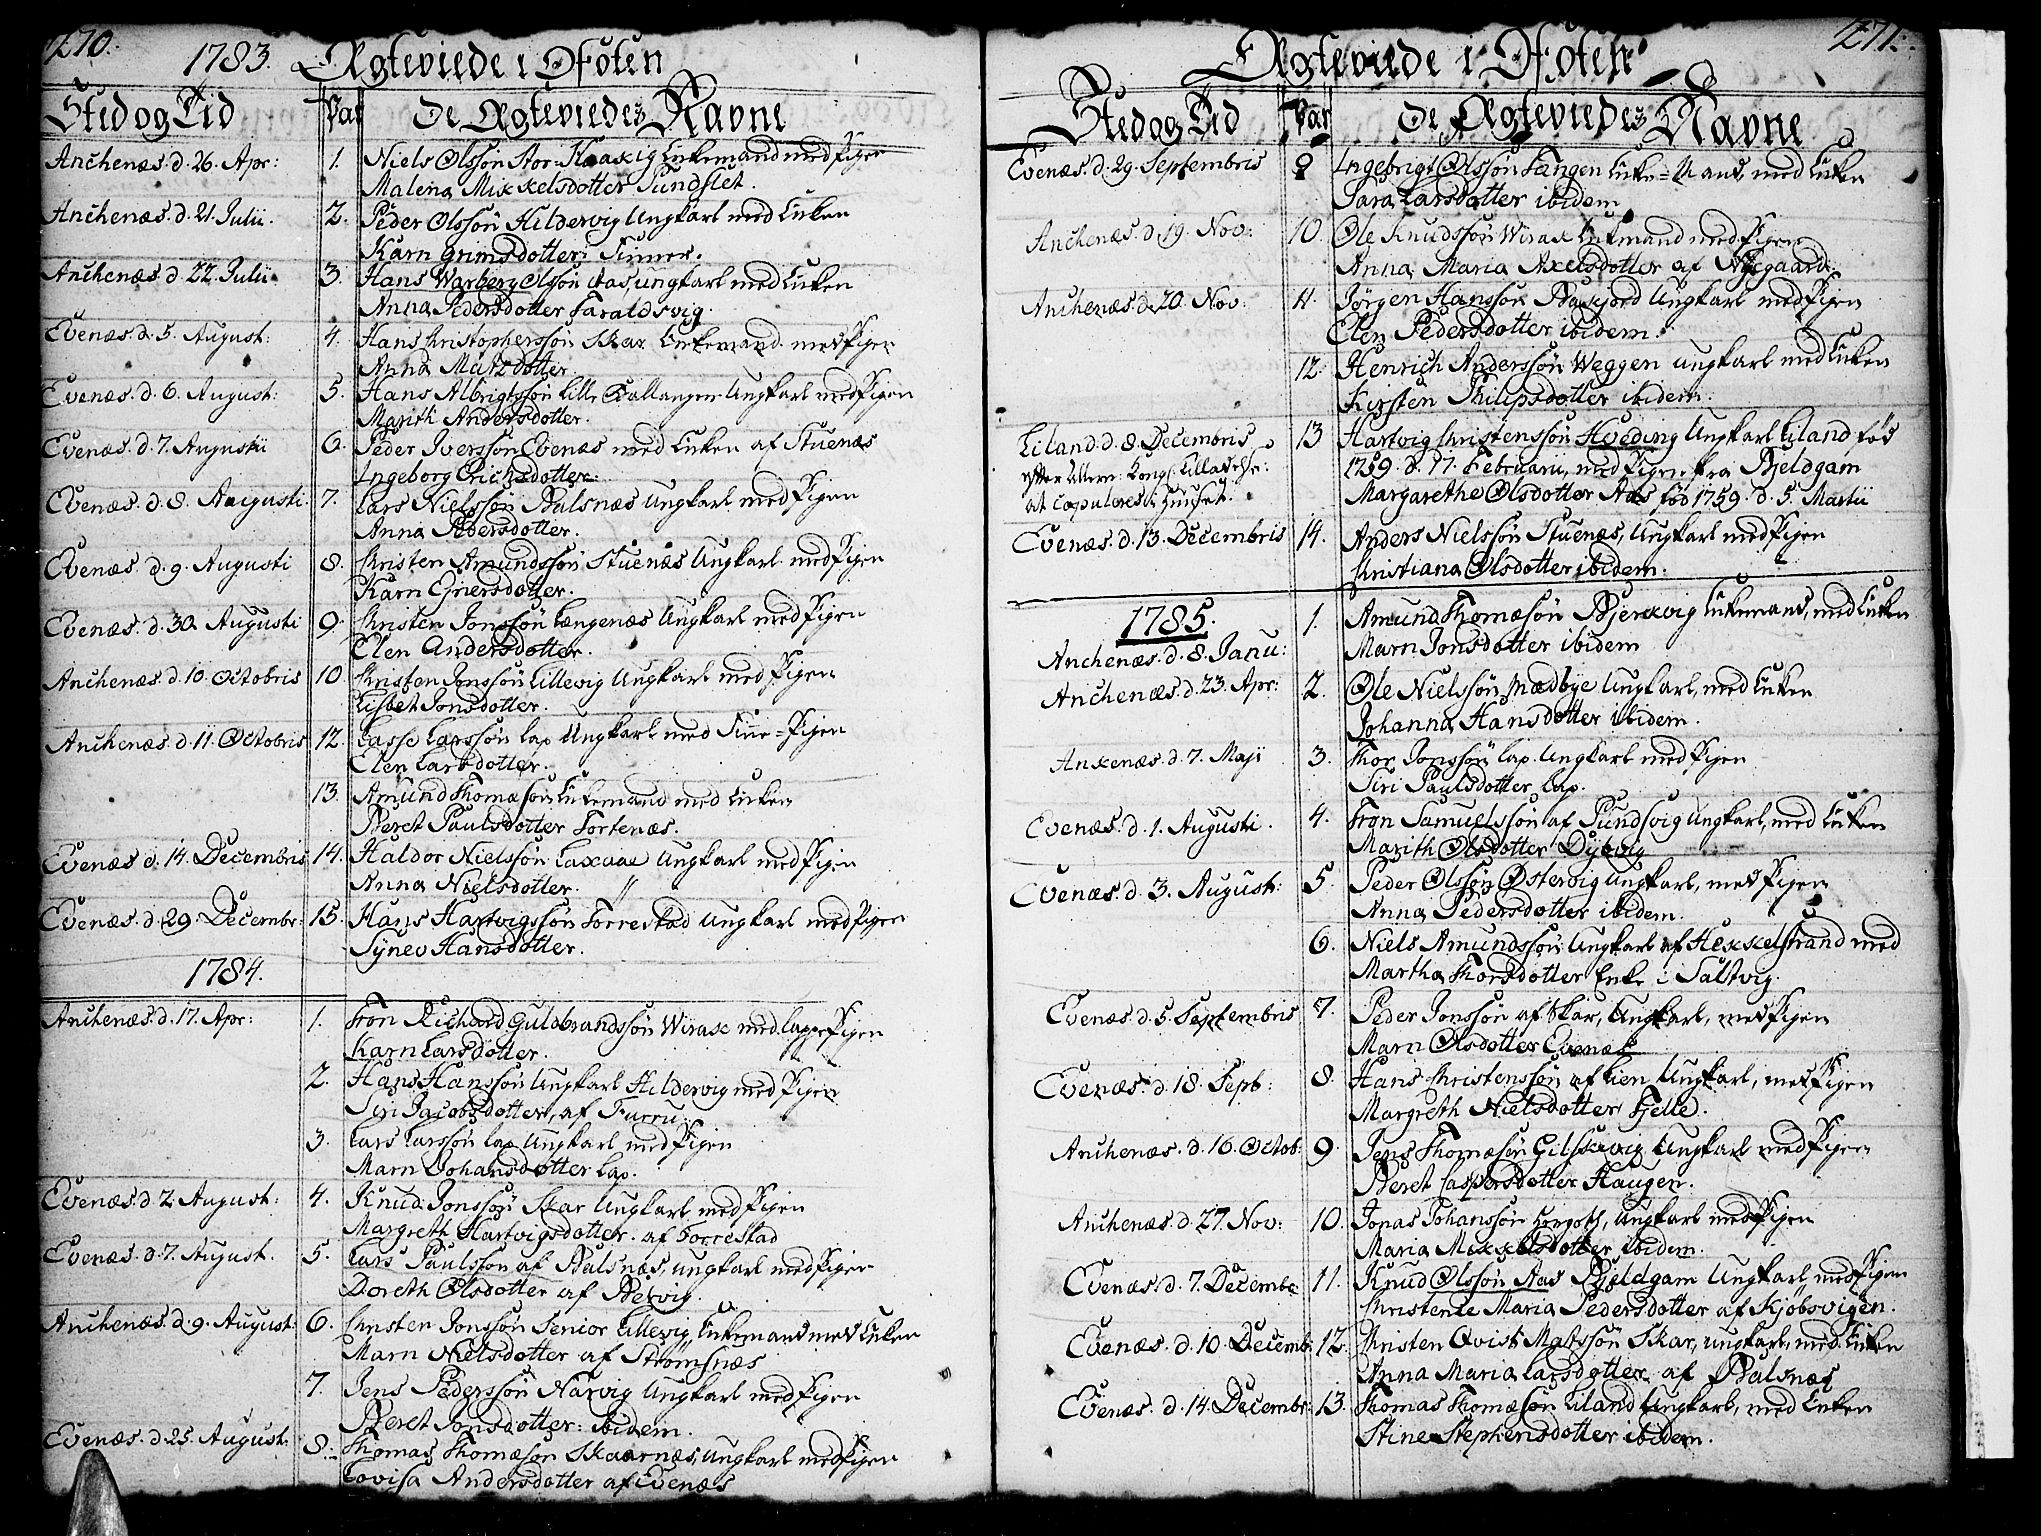 270.
1783. Ægteviede i Ofoten
Sted og Tid Par De Ægteviedes Navne
Anchenæs d. 26. Apr: 1. Niels Olssøn Stor- Enkemand med Pigen
Malena Mikkelsdotter Sundslet.
Anchenæs. d. 21. Julii. 2. Peder Olssøn Hildervig Ungkarl med Enken
Karn Grimsdotter i
Anchenæs. d. 22. Julii 3. Hans Warberg Olssøn Aas, ungkarl med Enken
Anna Pedersdotter Taraldsvig.
Evenæs. d. 5. August: 4. Hans Christophersøn Skar Enkemand med Pigen
Anna Matzdotter.
Evenæs. d. 6. August: 5. Hans Albrigtssøn Lille Ballangen Ungkarl med Pigen
Marith Andersdotter.
Evenæs. d. 7. Augustii 6. Peder Iverssøn Evenæs med Enken af Stuenæs
Ingeborg Erichsdotter.
Evenæs. d. 8. Augusti 7. Lars Nielssøn Balsnæs Ungkarl med Pigen
Anna Pedersdotter.
Evenæs. d. 9. Augusti 8. Christen Amundssøn Stuenæs Ungkarl med Pigen
Karn Ejnersdotter.
Evenæs. d. 30. Augusti 9. Christen Jonssøn Længenæs Ungkarl med Pigen
Elen Andersdotter.
Anchenæs. d. 10. Octobris 10. Christen Jonssøn Lillevig Ungkarl med Pigen
Lisbet Jonsdotter.
Anchenæs. d. 11. Octobris 12 Lasse Larssøn Lap Ungkarl med Finne-Pigen
Elen Larsdotter.
13. Amund Thomæsøn Enkemand med Enken
Beret Paulsdotter Tortenæs.
Evenæs d. 14. Decembris 14. Haldor Nielssøn Laxaae Ungkarl med Pigen
Anna Nielsdotter.
Evenæs. d. 29. Decembr: 15. Hans Hartvigssøn Forrestad Ungkarl med Pigen
Synev Hansdotter.
1784.
Anchenæs. d. 17. Apr: 1. Tron Richard Guldbrandssøn Wirax med Lappe Pigen
Karn Larsdotter.
2. Hans Hanssøn Ungkarl Hildervig med Pigen
Siri Jacobsdotter, af Furru
3. Lars Larssøn Lap Ungkarl med Pigen
Marn Johansdotter Lap.
Evenæs. d. 2. August: 4. Knud Jonssøn Skar Ungkarl med Pigen
Margreth Hartvigsdotter. af Forrestad
Evenæs. d. 7. August. 5. Lars Paulssøn af Balsnæs, ungkarl med Pigen
Doreth Olsdotter af Bervig.
Anchenæs. d. 9. August: 6. Christen Jonssøn Senior Lillevig, Enkemand med Enken
Marn Nielsdotter af Strømsnæs
7. Jens Pederssøn Narvig Ungkarl med Pigen
Beret Jonsdotter: ibidem.
Evenæs. d. 25. August. 8. Thomas Thomæsøn Skaarnæs, Ungkarl med Pigen
Lovisa Andersdotter af Evenæs
271.
Ægteviede i Ofoten
Sted og Tid Par De Ægteviedes Navne
Evenæs. d. 29. Septembris 9 Ingebrigt Olssøn Tangen Enke-Mand, med Enken
Sara Larsdotter ibidem
Anchenæs. d. 19. Nov: 10. Ole Knudssøn Wirax Enkemand med Pigen
Anna Maria Axelsdotter af Nygaard.
Anchenæs. d. 20. Nov: 11. Jørgen Hanssøn Ungkarl med Pigen
Elen Pedersdotter ibidem.
12. Henrich Anderssøn Weggen ungkarl med Enken
Kirsten Philipsdotter ibidem.
Liland. d. 8. Decembris 13 Hartvig Christenssøn Hveding Ungkarl Liland fød
efter Allern: Kongl: Tilladelse: 1759. d. 17. Februarii, med Pigen fra Bjeldgam
at copuleres i Huuset. Margarethe Olsdotter Aas fød 1759. d. 5. Martii
Evenæs. d. 13. Decembris 14. Anders Nielssøn Stuenæs, Ungkarl med Pigen
Christiana Olsdotter ibidem.
1785. 1. Amund Thomæsøn Bjerkvig Enkemand, med Enken
Anchenæs. d. 8. Janu: Marn Jonsdotter ibidem
Anchenæs. d. 23. Apr: 2. Ole Nielssøn Mædbye Ungkarl, med Enken
Johanna Hansdotter ibidem.
Anxenæs. d. 7. Maji 3. Thor Jonssøn Lap. Ungkarl med Pigen
Siri Paulsdotter Lap.
Evenæs. d. 1. Augusti. 4. Tron Samuelssøn af Sundsvig Ungkarl, med Enken
Marith Olsdotter Dybvig
Evenæs. d. 3. August: 5. Peder Olssøn Østervig Ungkarl, med Pigen
Anna Pedersdotter ibidem.
6. Niels Amundssøn Ungkarl af Hekkelstrand med
Martha Thorsdotter Enke i Saltvig.
Evenæs. d. 5. Septembris 7. Peder Jonssøn af Skar, Ungkarl, med Pigen
Marn Olsdotter Evenæs
Evenæs. d. 18. Septb: 8. Hans Christenssøn af Lien Ungkarl, med Pigen
Margreth Nielsdotter Fjelle.
Anchenæs. d. 16. Octob: 9. Jens Thomæsøn Ungkarl med Pigen
Beret Caspersdotter Haugen.
Anchenæs. d. 27. Nov: 10. Jonas Johanssøn Ungkarl med Pigen
Maria Mikkelsdotter ibidem.
Evenæs. d. 7. Decembr 11. Knud Olssøn Aas Bjeldgam Ungkarl, med Pigen
Christence Maria Pedersdotter af Kjøbsvigen.
Evenæs. d. 10. Decemb: 12. Christen Qvist Matssøn Skar, ungkarl, med Enken
Anna Maria Larsdotter af Balsnæs
Evenæs. d. 14. Decembr: 13. Thomas Thomæsøn Liland Ungkarl, med Enken
Stine Stephensdotter ibidem.